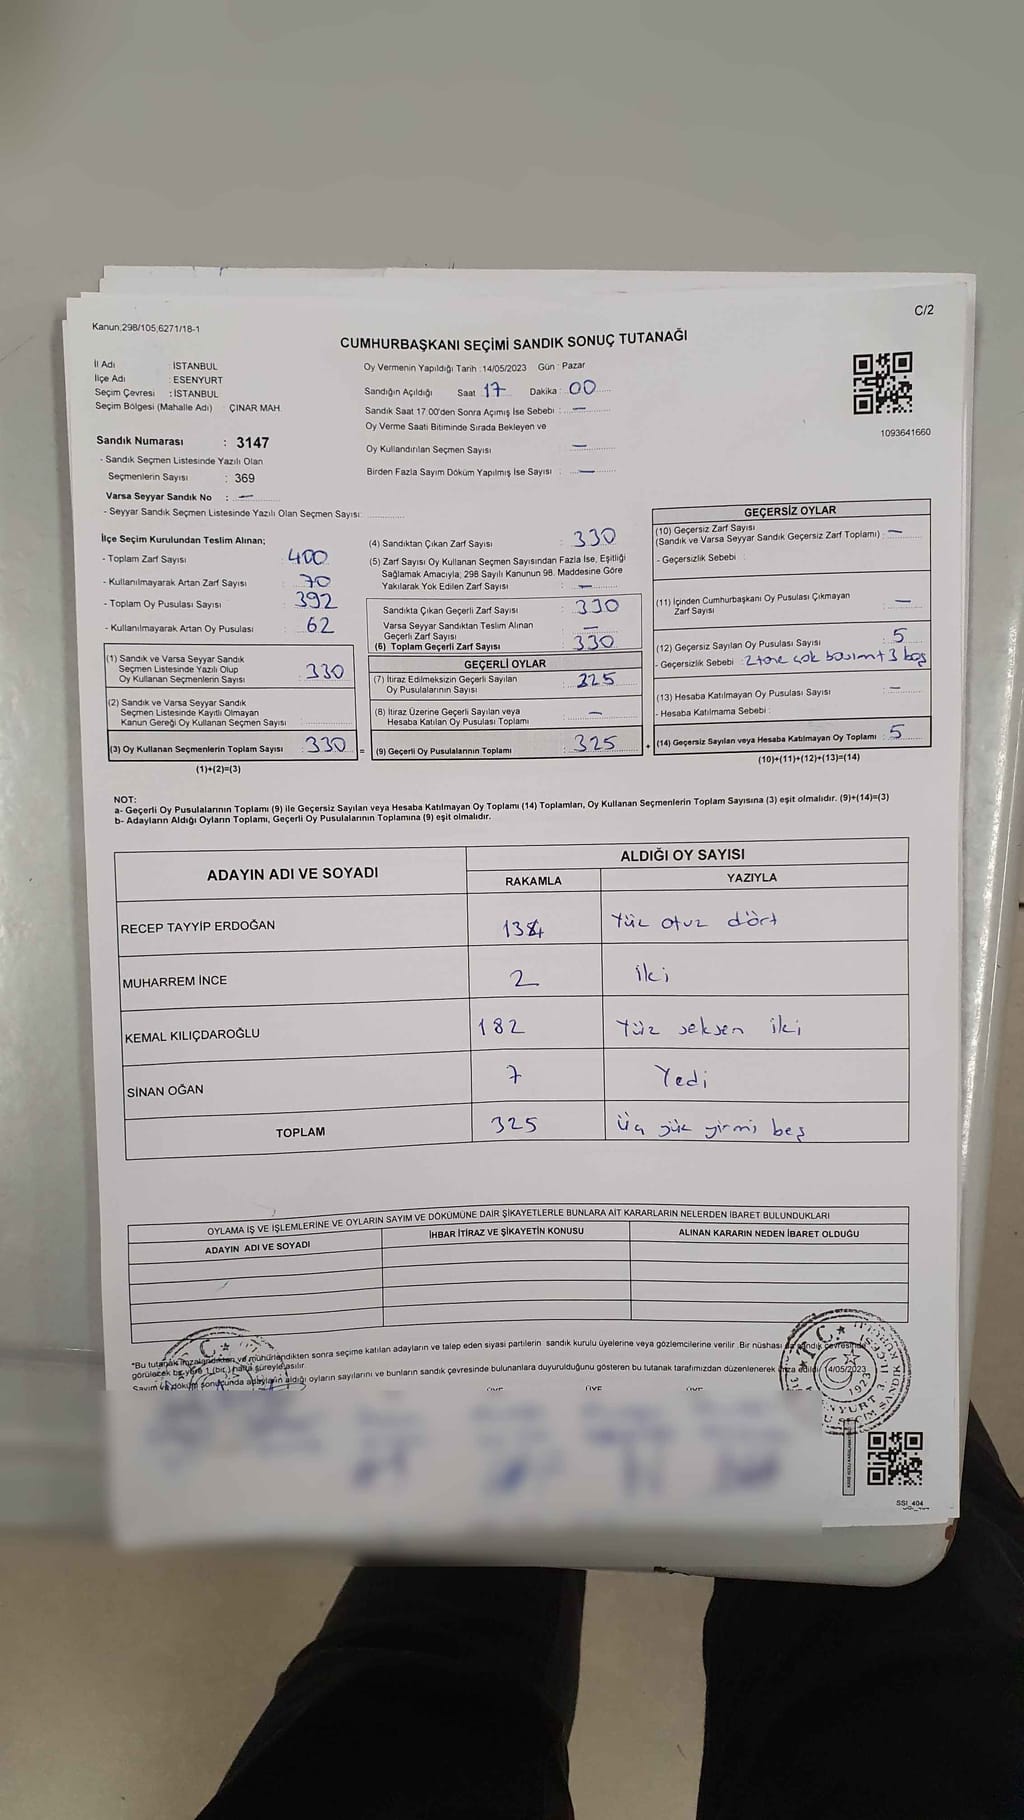 C/2
Kanun,298/105,6271/18-1
CUMHURBAŞKANI SEÇİMİ SANDIK SONUÇ TUTANAĞI
İl Adı : İSTANBUL
İlçe Adı : ESENYURT
Seçim Çevresi : İSTANBUL
Seçim Bölgesi (Mahalle Adı) ÇINAR MAH.
Sandık Numarası : 3147
- Sandık Seçmen Listesinde Yazılı Olan
Seçmenlerin Sayısı : 369
Varsa Seyyar Sandık No : —
- Seyyar Sandık Seçmen Listesinde Yazılı Olan Seçmen Sayısı:
Oy Vermenin Yapıldığı Tarih :14/05/2023 Gün : Pazar
Sandığın Açıldığı Saat 17 Dakika : 00
Sandık Saat 17.00'den Sonra Açımış İse Sebebi : —
Oy Verme Saati Bitiminde Sırada Bekleyen ve
Oy Kullandırılan Seçmen Sayısı —
Birden Fazla Sayım Döküm Yapılmış İse Sayısı : —
1093641660
İlçe Seçim Kurulundan Teslim Alınan;
- Toplam Zarf Sayısı : 400
- Kullanılmayarak Artan Zarf Sayısı : 70
- Toplam Oy Pusulası Sayısı : 392
- Kullanılmayarak Artan Oy Pusulası : 62
(1) Sandık ve Varsa Seyyar Sandık
Seçmen Listesinde Yazılı Olup
Oy Kullanan Seçmenlerin Sayısı : 330
(2) Sandık ve Varsa Seyyar Sandık
Seçmen Listesinde Kayıtlı Olmayan
Kanun Gereği Oy Kullanan Seçmen Sayısı :
(3) Oy Kullanan Seçmenlerin Toplam Sayısı : 330
(1)+(2)=(3)
=
(4) Sandıktan Çıkan Zarf Sayısı : 330
(5) Zarf Sayısı Oy Kullanan Seçmen Sayısından Fazla İse, Eşitliği
Sağlamak Amacıyla; 298 Sayılı Kanunun 98. Maddesine Göre
Yakılarak Yok Edilen Zarf Sayısı : —
Sandıkta Çıkan Geçerli Zarf Sayısı : 330
Varsa Seyyar Sandıktan Teslim Alınan
Geçerli Zarf Sayısı : —
(6) Toplam Geçerli Zarf Sayısı : 330
GEÇERLİ OYLAR
(7) İtiraz Edilmeksizin Geçerli Sayılan
Oy Pusulalarının Sayısı : 325
(8) İtiraz Üzerine Geçerli Sayılan veya
Hesaba Katılan Oy Pusulası Toplamı : —
(9) Geçerli Oy Pusulalarının Toplamı : 325
+
GEÇERSİZ OYLAR
(10) Geçersiz Zarf Sayısı
(Sandık ve Varsa Seyyar Sandık Geçersiz Zarf Toplamı) : —
- Geçersizlik Sebebi :
(11) İçinden Cumhurbaşkanı Oy Pusulası Çıkmayan
Zarf Sayısı : —
(12) Geçersiz Sayılan Oy Pusulası Sayısı : 5
- Geçersizlik Sebebi : 2 tane çok basım + 3 boş
(13) Hesaba Katılmayan Oy Pusulası Sayısı : —
- Hesaba Katılmama Sebebi :
(14) Geçersiz Sayılan veya Hesaba Katılmayan Oy Toplamı : 5
(10)+(11)+(12)+(13)=(14)
NOT:
a- Geçerli Oy Pusulalarının Toplamı (9) ile Geçersiz Sayılan veya Hesaba Katılmayan Oy Toplamı (14) Toplamları, Oy Kullanan Seçmenlerin Toplam Sayısına (3) eşit olmalıdır. (9)+(14)=(3)
b- Adayların Aldığı Oyların Toplamı, Geçerli Oy Pusulalarının Toplamına (9) eşit olmalıdır.
ADAYIN ADI VE SOYADI ALDIĞI OY SAYISI
RAKAMLA YAZIYLA
RECEP TAYYİP ERDOĞAN 134 Yüz otuz dört
MUHARREM İNCE 2 iki
KEMAL KILIÇDAROĞLU 182 Yüz seksen iki
SİNAN OĞAN 7 Yedi
TOPLAM 325 Üç yüz yirmi beş
OYLAMA İŞ VE İŞLEMLERİNE VE OYLARIN SAYIM VE DÖKÜMÜNE DAİR ŞİKAYETLERLE BUNLARA AİT KARARLARIN NELERDEN İBARET BULUNDUKLARI
ADAYIN ADI VE SOYADI İHBAR İTİRAZ VE ŞİKAYETİN KONUSU ALINAN KARARIN NEDEN İBARET OLDUĞU
*Bu tutanak imzalandıktan ve mühürlendikten sonra seçime katılan adayların ve talep eden siyasi partilerin sandık kurulu üyelerine veya gözlemcilerine verilir .Bir nüshası da sandık çevresinde
görülecek bir yere 1 (bir) hafta süreyle asılır.
Sayım ve döküm sonucunda adayların aldığı oyların sayılarını ve bunların sandık çevresinde bulunanlara duyurulduğunu gösteren bu tutanak tarafımızdan düzenlenerek imza edildi. 14/05/2023
ÜYE ÜYE ÜYE
T.C.
SSI_404